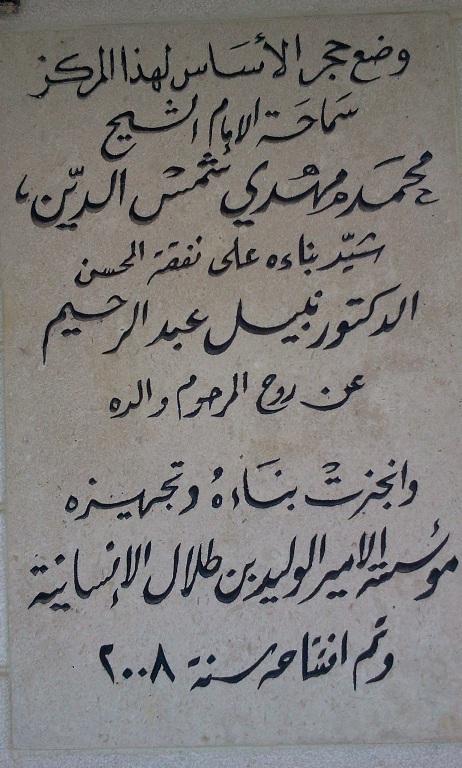 وضع حجر الأسَاس لهذا المركز
سَماحَة الإمام الشيخ
محمَد مهْدي شمْسْ الدّين،
شيّد بناءه على نفقة المحسن
الدكتور نبيل عبد الرحيم
عن روح المرحوم والده
وانجزتْ بنَاءهُ وتجهيزه
مؤسسة الامير الوليد بن طلال الإنسانية
وتم افتتاحه سنة ٢٠٠٨